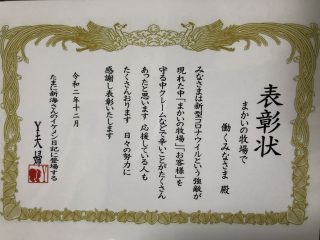 表彰状
まかいの牧場で
働くみなさま 殿
みなさまは新型コロナウイルという強敵が
現れた中「まかいの牧場」「お客様」を
守る中クレームなどで辛いことがたくさん
あったと思います 応援している人も
たくさんおります 日々の努力に
感謝し表彰いたします
令和二年十二月
たまに新海さんのイケメン日記に登場する